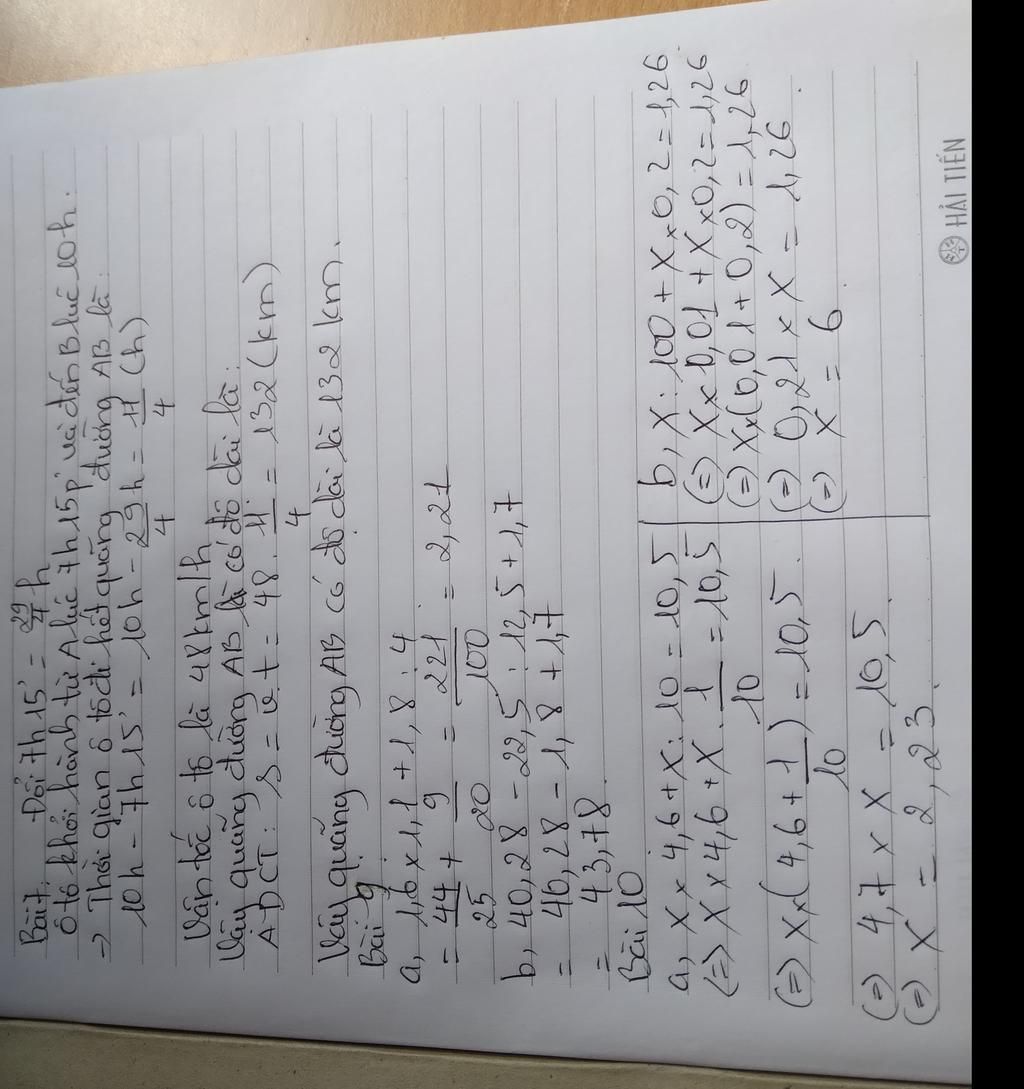 Bài 7: Đổi 7h15' = 29/4 h
Ô tô khởi hành từ A lúc 7h15p' và đến B lúc 10h.
→ Thời gian ô tô đi hết quãng đường AB là:
10h - 7h15' = 10h - 29/4 h = 11/4 (h)
Vận tốc ô tô là 48km/h
Vậy quãng đường AB có độ dài là:
ADCT: S = v.t = 48 . 11/4 = 132 (km)
Vậy quãng đường AB có độ dài là 132 km.
Bài 9
a, 1,6 x 1,1 + 1,8 : 4
= 44/25 + 9/20 = 221/100 = 2,21
b, 40,28 - 22,5 : 12,5 + 1,7
= 40,28 - 1,8 + 1,7
= 43,78
Bài 10
a, X x 4,6 + X : 10 = 10,5
(=) X x 4,6 + X . 1/10 = 10,5
(=) X x (4,6 + 1/10) = 10,5.
(=) 4,7 x X = 10,5
(=) X = 2,23.
b, X : 100 + X x 0,2 = 1,26.
(=) X x 0,01 + X x 0,2 = 1,26
(=) X x (0,01 + 0,2) = 1,26
(=) 0,21 x X = 1,26.
(=) X = 6
HẢI TIẾN